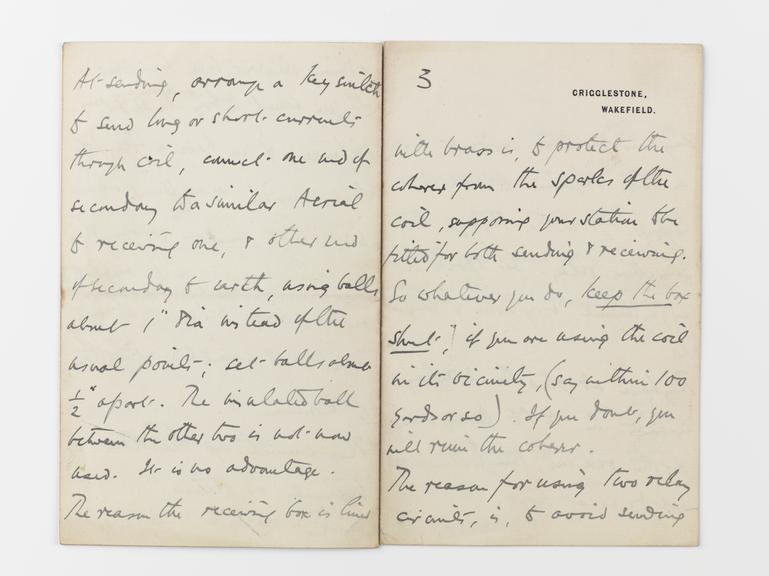 At sending, arrange a key switch
to send long or short currents
through coil, connect one end of
secondary to a similar Aerial
to receiving one, & other end
of secondary to earth, using balls
about 1" Dia instead of the
usual points; set balls about
½" apart. The insulated ball
between the other two is not now
used. It is no advantage.
The reason the receiving box is lined
3
CRIGGLESTONE,
WAKEFIELD.
with brass is, to protect the
coherer from the sparks of the
coil, supposing your station to be
fitted for both sending & receiving.
So whatever you do, keep the box
shut, if you are using the coil
in its vicinity, (say within 100
yards or so). If you don't, you
will ruin the coherer.
The reason for using two relay
circuits, is, to avoid sending